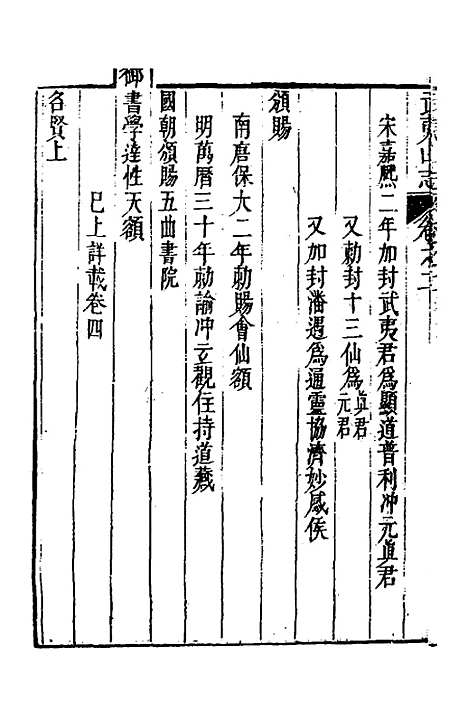 武夷山志
宋嘉熙二年加封武夷君為顯道普利冲元眞君
又勑封十三仙為眞君元君
又加封潘遇為通靈協濟妙感侯
頒賜
南唐保大二年勑賜會仙額
明萬曆三十年勑諭冲玄觀住持道藏
國朝頒賜五曲書院
御書學達性天額
已上詳載卷四
名賢上